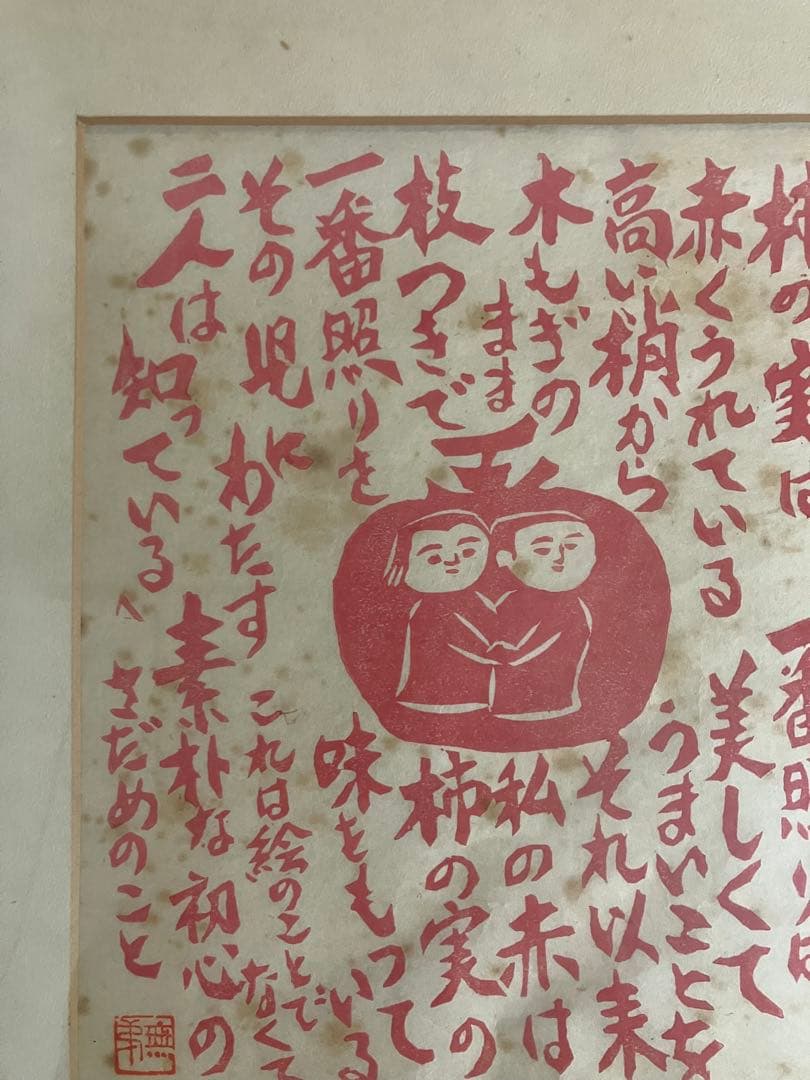 柿の実は
赤くうれている
高い梢から
木もぎの
まま
枝つきで
一番照りを
その児に
わたす
一番照りは
美しくて
うまいことを
二人は
知っている
それ以来
私の赤は
柿の実の
味をもっている
これは絵のことで
なくて
素朴な初心の
さだめのこと